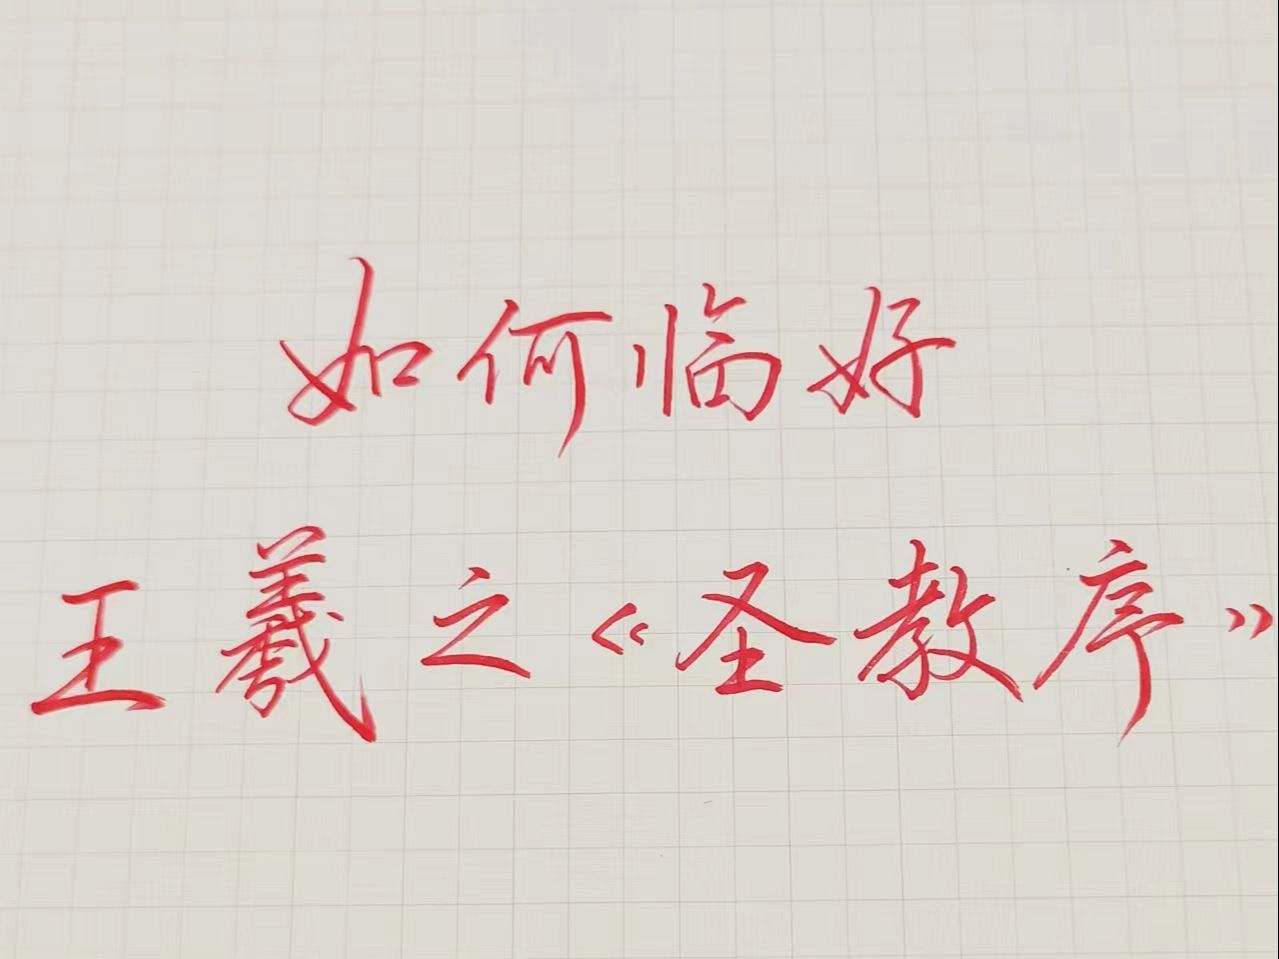 如何临好
王羲之《圣教序》